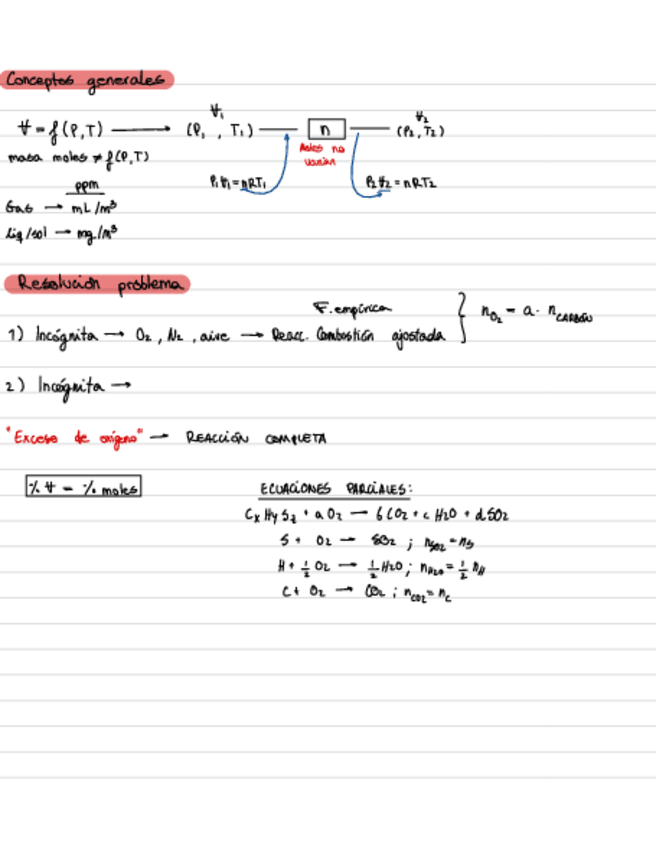 Conceptos generales
V = f(P,T) → (P₁, T₁) V₁ — n — (P₂, T₂) V₂
masa moles ≠ f(P,T)
Moles no varían
P₁V₁ = nRT₁
P₂V₂ = nRT₂
ppm
Gas → mL/m³
Liq/sol → mg/m³
Resolución problema
F. empírica
1) Incógnita → O₂, N₂, aire → Reacc. Combustión ajustada } nO₂ = a · nCARBÓN
2) Incógnita →
"Exceso de oxígeno" → REACCIÓN COMPLETA
% V = % moles
ECUACIONES PARCIALES:
CxHySz + a O₂ → b CO₂ + c H₂O + d SO₂
S + O₂ → SO₂ ; nSO₂ = nS
H + ½ O₂ → ½ H₂O ; nH₂O = ½ nH
C + O₂ → CO₂ ; nCO₂ = nC